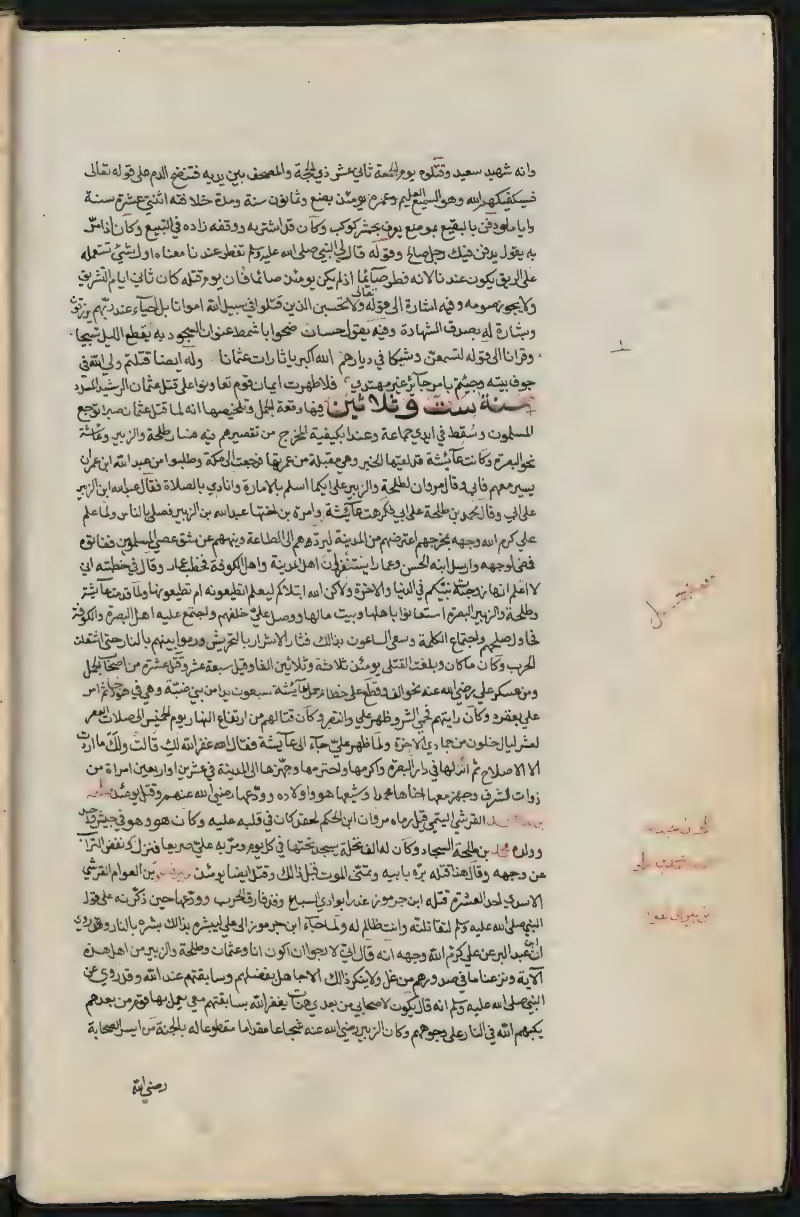 وانه شهيد سعيد وقتلوه يوم الجمعة ثاني عشر ذي الحجة والمصحف بين يديه فنضح الدم على قوله تعالى
فسيكفيكهم الله وهو السميع العليم وعمره يومئذ بضع وثمانون سنة ومدة خلافته اثنتي عشرة سنة
وايام ودفن بالبقيع بموضع يعرف بحش كوكب وكان قد اشتريه ووقفه زاده في البقيع وكان اذا مر
به يقول يدفن فيك رجل صالح وقوله قال لي النبي صلى الله عليه وسلم تفطر عندنا معناه اول شئ تستعمله
على الريق يكون عندنا لانه فطر صائما اذ لم يكن يومئذ صائما فان يوم قتله كان ثاني ايام التشريق
ولا يجوز صومه وفيه اشارة الى قوله تعالى ولا تحسبن الذين قتلوا في سبيل الله امواتا بل احياء عند ربهم يرزقون
وبشارة له بصدق الشهادة وفيه يقول حسان ضحوا باشمط عنوان السجود به يقطع الليل تسبيحا
وقرانا الى قوله لتسمعن وشيكا في ديارهم الله اكبر يا ثارات عثمانا وله ايضا قتلتم ولي الله في
جوف بيته وجئتم بامر جائر غير مهتدي فلا ظهرت ايمان قوم تعاونوا على قتل عثمان الرشيد المسدد
سنة ست وثلاثين فيها وقعة الجمل وتلخيصها انه لما قتل عثمان صبرا توجع
المسلمون وسقط في ايدي جماعة وعنوا بكيفية المخرج من تقصيرهم فيه فسار طلحة والزبير وعائشة
نحو البصرة وكانت عائشة قد لقيها الخبر وهي مقبلة من عمرتها فرجعت الى مكة وطلبوا من عبد الله ابن عمر ان
يسير معهم فابى وقال مروان لطلحة والزبير على ايكما اسلم بالامارة وانادي بالصلاة فقال عبد الله ابن الزبير
على ابي وقال محمد بن طلحة على ابي فكرهت عائشة وامرت بن اختها عبد الله بن الزبير فصلى بالناس ولما علم
علي كرم الله وجهه بمخرجهم اعترضهم من المدينة ليردهم الى الطاعة وينهيهم عن شق عصى المسلمين ففاتوه
فمضى لوجهه وارسل ابنه الحسن وعمارا يستنفران اهل المدينة واهل الكوفة فخطب عمار وقال في خطبته اني
لاعلم انها زوجة نبيكم في الدنيا والاخرة ولاكن الله ابتلاكم ليعلم اتطيعونه ام تطيعونها ولما قدمت عائشة
وطلحة والزبير البصرة استعانوا باهلها وبيت مالها ووصل علي خلفهم واجتمع عليه اهل البصرة والكوفة
فحاول صلحهم واجتماع الكلمة وسعى الساعون بذالك فثار الاشرار بالتحريش ورموا بينهم بالنار حتى اشتعلت
الحرب وكان ما كان وبلغت القتلى يومئذ ثلاثة وثلاثين الفا وقيل سبعة عشر وقتل عشرة من اصحاب الجمل
ومن عسكر علي رضي الله عنه نحو الف وقطع على خطام جمل عائشة سبعون يدا من بني ضبة وهي في هودجها ثم امر
علي بعقره وكان رايتهم فحمي الشر وظهر علي وانتصر وكان قتالهم من ارتفاع النهار يوم الخميس الى صلات العصر
لعشر ليال خلون من جمادي الاخرة ولما ظهر علي جاء الى عائشة فقال لها غفر الله لك قالت ولك ما اردت
الا الاصلاح ثم انزلها في دار البصرة واكرمها واحترمها وجهزها الى المدينة في عشرين او اربعين امراة من
ذوات الشرف وجهز معها اخاها محمدا وشيعها هو واولاده وودعها رضي الله عنهم وقتل يومئذ طلحة
القرشي التيمي قيل رماه مروان ابن الحكم لحقد كان في قلبه عليه وكان هو وهو في جيش واحد
وولده محمد بن طلحة السجاد وكان له الف نخلة يسجد تحتها في كل يوم ومر به علي صريعا فنزل له نفض التراب
عن وجهه وقال هذا قتله بره بابيه وتمنى الموت قبل ذالك وقتل ايضا يومئذ بن العوام القرشي
الاسدي احد العشرة قتله ابن جرموز عنده ابوادي السباع وقد فارق الحرب وودعها حين ذكرته علي قول
النبي صلى الله عليه وسلم لتقاتلنه وانت ظالم له ولما جاء ابن جرموز الى علي ليبشره بذالك بشره بالنار وقد روي
ابن عبد البر عن علي كرم الله وجهه انه قال اني لارجوا ان اكون انا وعثمان وطلحة والزبير من اهل هذه
الاية ونزعنا ما في صدورهم من غل ولا ينكر ذالك الا جاهل بفضلهم وسابقتهم عند الله وقد روي عن
النبي صلى الله عليه وسلم انه قال يكون لاصحابي من بعدي هنات يغفر الله بسابقتهم معي يعمل بها قوم من بعدهم
يكبهم الله في النار على وجوههم وكان الزبير رضي الله عنه شجاعا مقداما مقطوعا له بالجنة من ايسر الصحابة
رضي الله